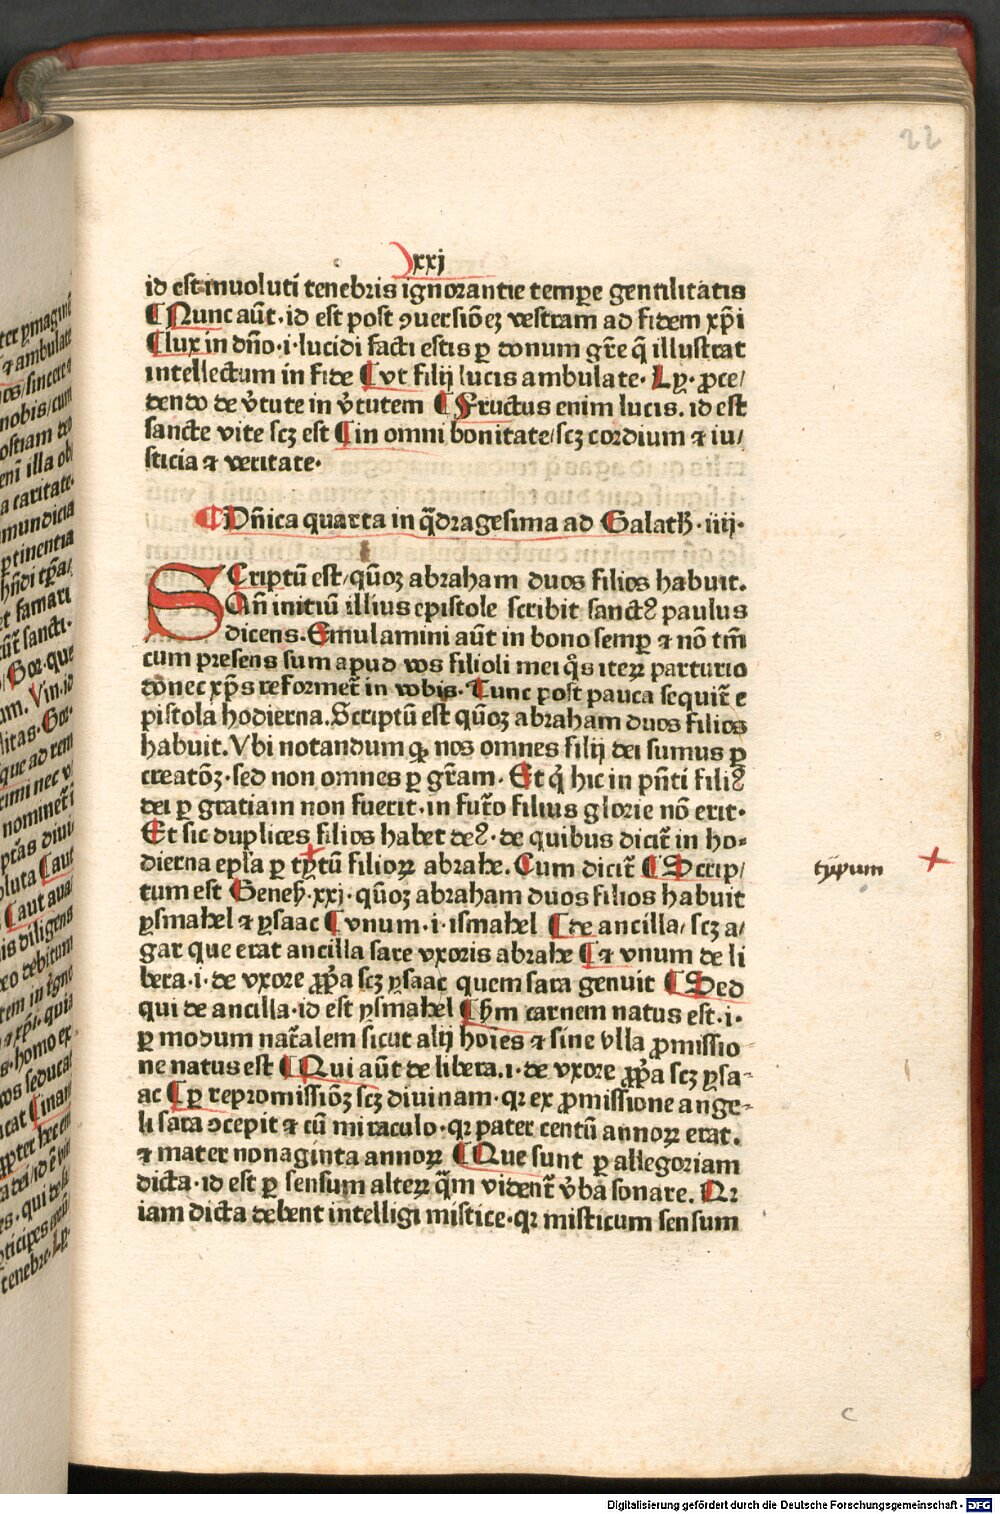 22
xxj
id est inuoluti tenebris ignorantie tempe̲ gentilitatis
¶ Nunc aūt · id est post ꝯuersiōeꝫ vestram ad fidem xp̄i
¶ lux in dn̄o · i · lucidi facti estis ꝑ donum gr̄e q̄ illustrat
intellectum in fide ¶ vt filij lucis ambulate · Ly · ꝓce/
dendo de v̄tute in v̄tutem ¶ Fructus enim lucis . id est
sancte vite scꝫ est ¶ in omni bonitate/ scꝫ cordium ⁊ iu/
sticia ⁊ veritate ·
¶ Dn̄ica quarta in q̄dragesima ad Galath̄ · iiij ·
SCriptū est/ qūoꝫ abraham duos filios habuit .
An̄ initiū illius epistole scribit sanctꝰ paulus
dicens . Emulamini aūt in bono semꝑ ⁊ nō tm̄
cum presens sum apud vos filioli mei q̄s iteꝝ parturio
donec xp̄s reformet̄ in vobis · Tunc post pauca sequit̄ e
pistola hodierna . Scriptū est qūoꝫ abraham duos filios
habuit . Vbi notandum ꝙ nos omnes filij dei sumus ꝑ
creatōꝫ · sed non omnes ꝑ gr̄am · Et q̇ hic in pn̄ti filiꝰ
dei ꝑ gratiam non fuerit · in futr̄o filius glorie nō erit ·
Et sic duplices filios habet deꝰ · de quibus dicit̄ in ho-
dierna epl̄a ꝑ tytū filioꝝ abrahe . Cum dicit̄ ¶ Scrip/
typum
tum est Geneẜ · xxj · qūoꝫ abraham duos filios habuit
ysmahel ⁊ ysaac ¶ vnum · i · ismahel ¶ de ancilla/ scꝫ a/
gar que erat ancilla sare vxoris abrahe ¶ ⁊ vnum de li
bera · i · de vxore ꝓp̄a scꝫ ysaac quem sara genuit ¶ Sed
qui de ancilla · id est ysmahel ¶ ẜm carnem natus est · i ·
ꝑ modum nat̄alem sicut alij hoīes ⁊ sine vlla ꝓmissio
ne natus est ¶ Qui aūt de libera . i · de vxore ꝓp̄a scꝫ ysa-
ac ¶ ꝑ repromissiōꝫ scꝫ diuinam · qꝛ ex ꝓmissione ange-
li sara ꝯcepit ⁊ cū miraculo · qꝛ pater centū annoꝝ erat .
⁊ mater nonaginta annoꝝ ¶ Que sunt ꝑ allegoriam
dicta · id est ꝑ sensum alteꝝ q̄m vident̄ v̄ba sonare . Qꝛ
iam dicta debent intelligi mistice · qꝛ misticum sensum
c
Digitalisierung gefördert durch die Deutsche Forschungsgemeinschaft - DFG